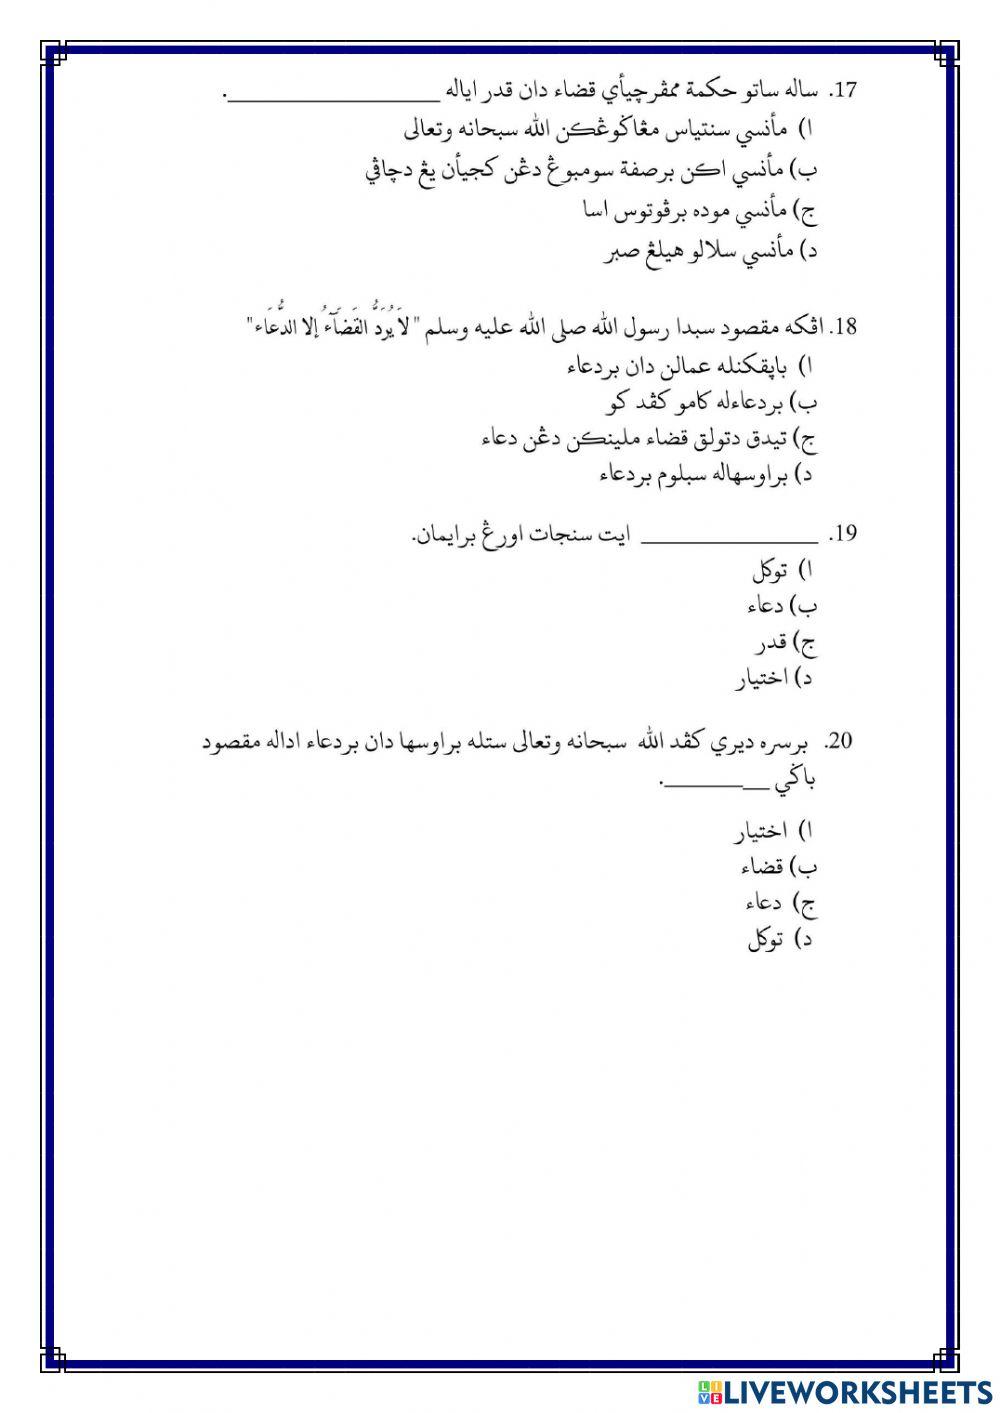 17. ساله ساتو حكمة ممڤرچيأي قضاء دان قدر اياله __________________.
ا) مأنسي سنتياس مڠاݢوڠكن الله سبحانه وتعالى
ب) مأنسي اكن برصفة سومبوڠ دڠن كجيأن يڠ دچاڤي
ج) مأنسي موده برڤوتوس اسا
د) مأنسي سلالو هيلڠ صبر
18. اڤكه مقصود سبدا رسول الله صلى الله عليه وسلم " لاَ يُرَدُّ القَضَآءُ إلا الدُّعَاء"
ا) باڽقكنله عمالن دان بردعاء
ب) بردعاءله كامو كڤد كو
ج) تيدق دتولق قضاء ملينكن دڠن دعاء
د) براوسهاله سبلوم بردعاء
19. _______________ ايت سنجات اورڠ برايمان.
ا) توكل
ب) دعاء
ج) قدر
د) اختيار
20. برسره ديري كڤد الله سبحانه وتعالى ستله براوسها دان بردعاء اداله مقصود
باݢي _________.
ا) اختيار
ب) قضاء
ج) دعاء
د) توكل
LIVEWORKSHEETS